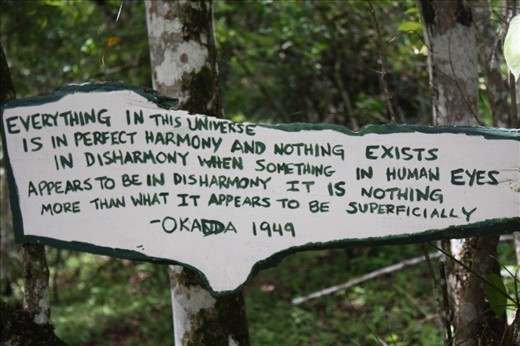 EVERYTHING IN THIS UNIVERSE
IS IN PERFECT HARMONY AND NOTHING EXISTS
IN DISHARMONY WHEN SOMETHING IN HUMAN EYES
APPEARS TO BE IN DISHARMONY IT IS NOTHING
MORE THAN WHAT IT APPEARS TO BE SUPERFICIALLY
-OKADA 1949